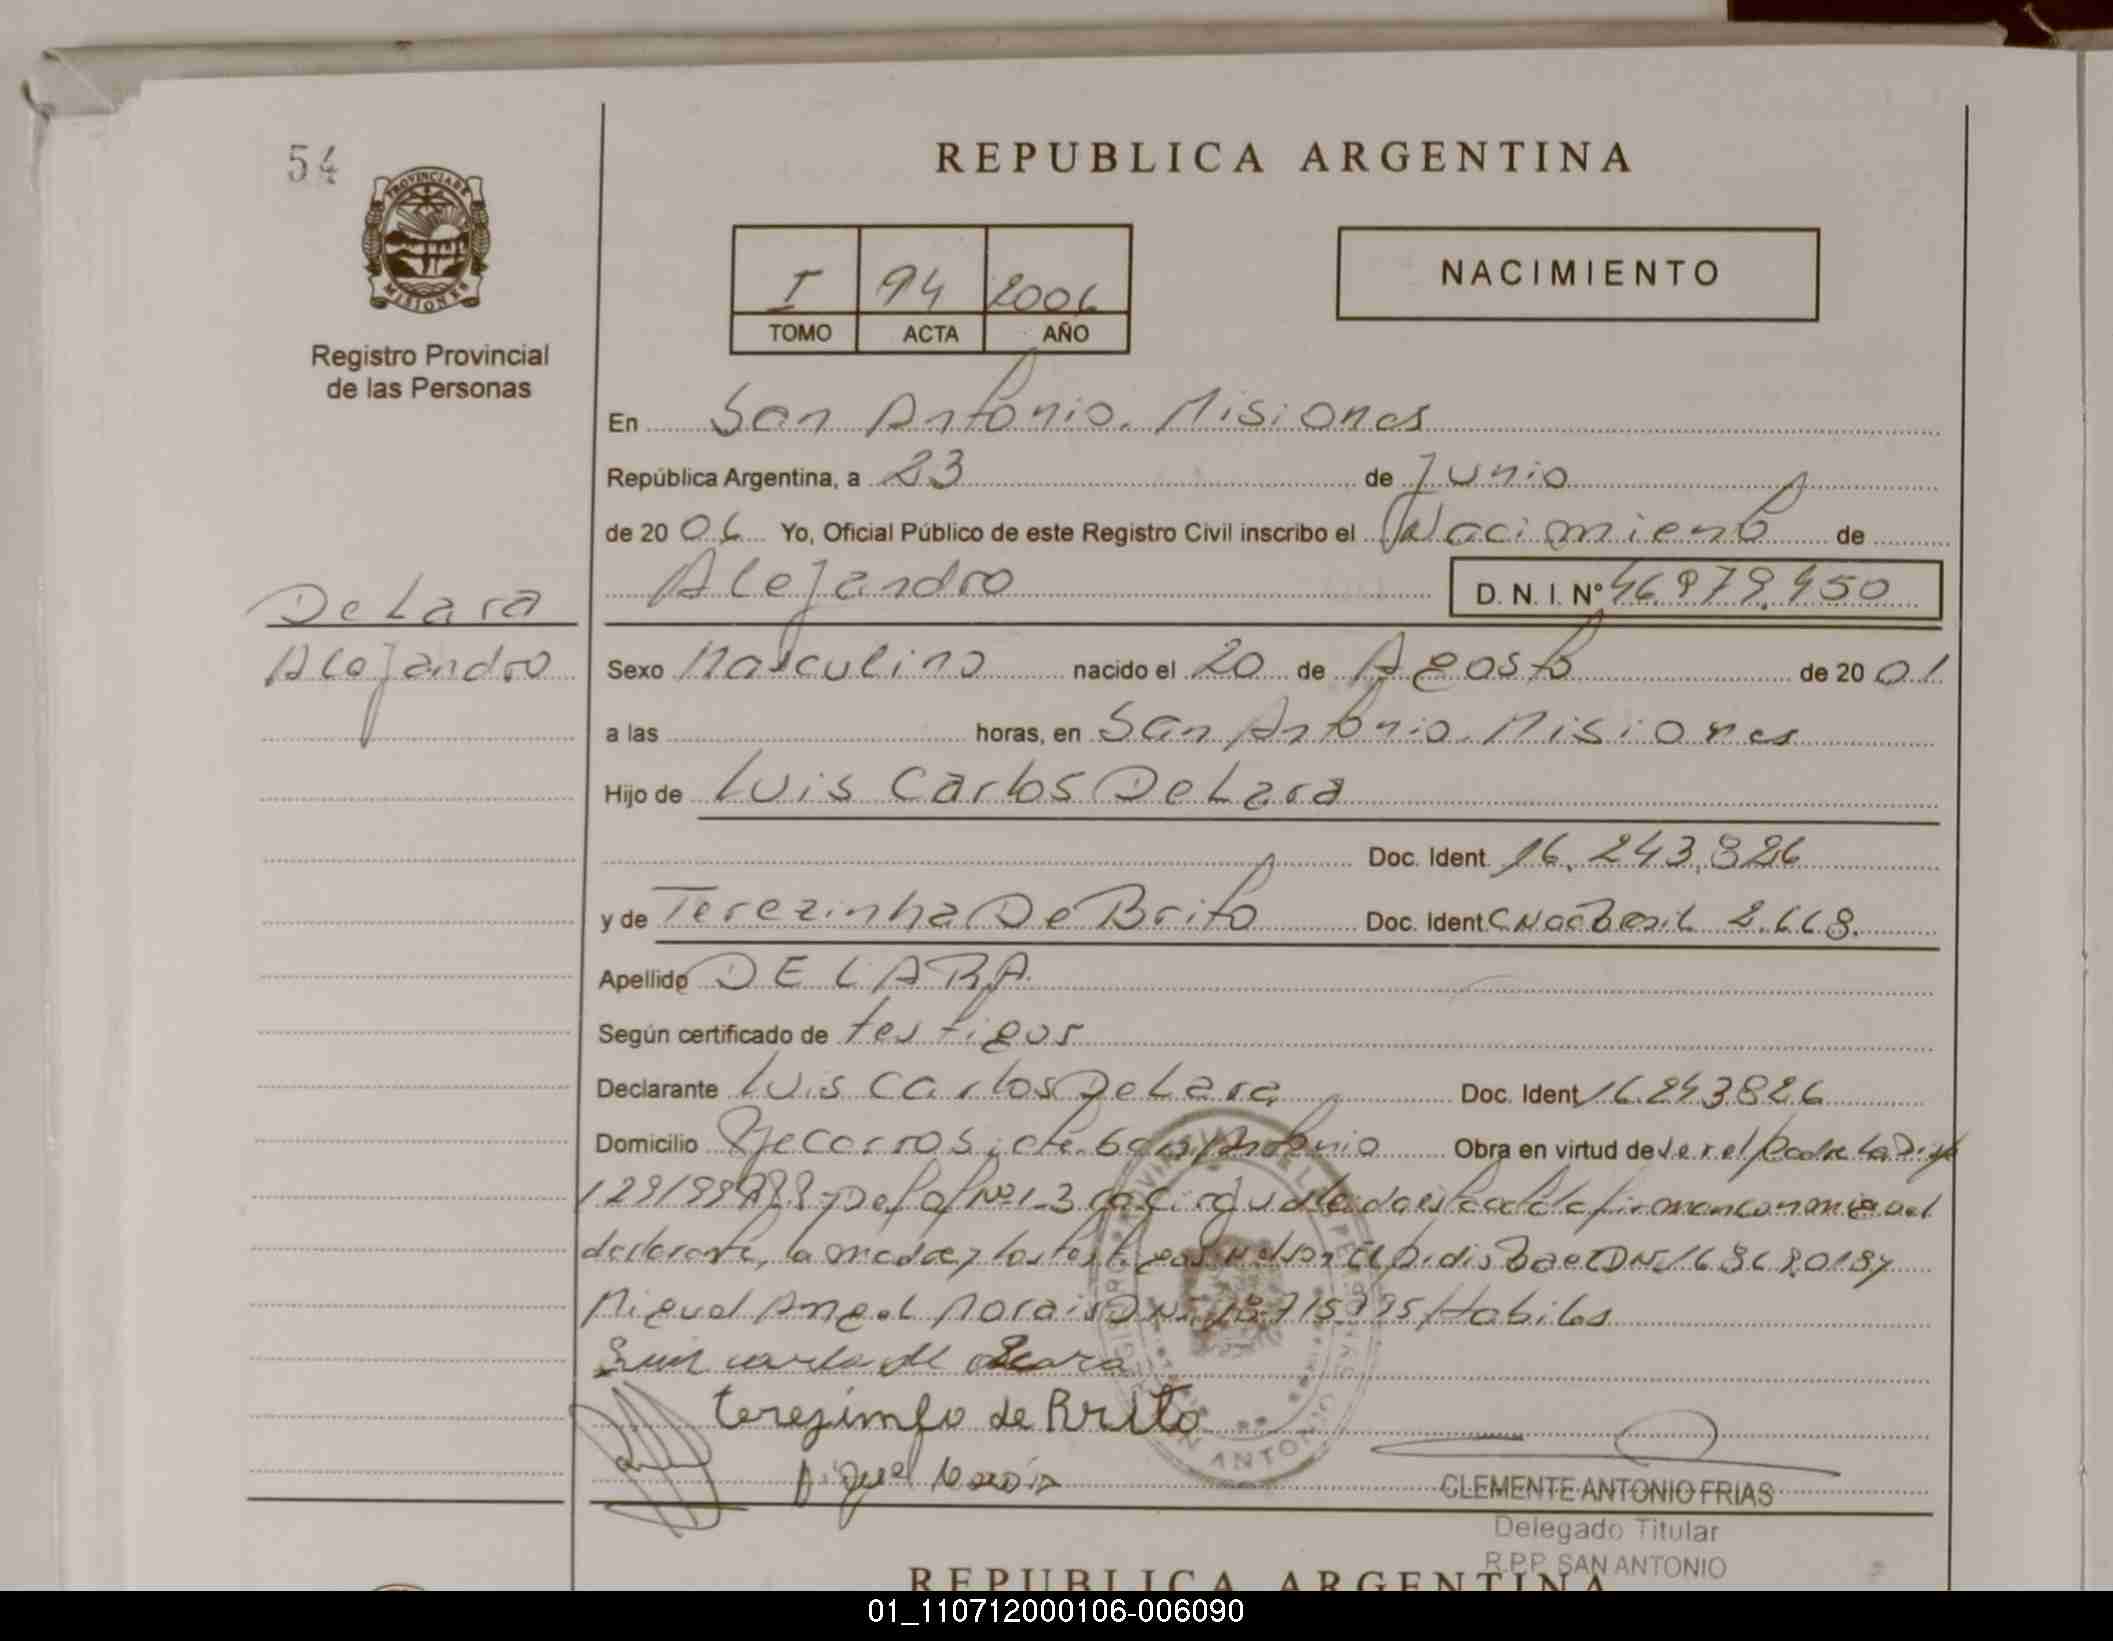 54
PROVINCIA DE
MISIONES
Registro Provincial
de las Personas
REPUBLICA ARGENTINA
I 94 2006
TOMO ACTA AÑO
NACIMIENTO
En San Antonio. Misiones
República Argentina, a 23 de Junio
de 20 06 Yo, Oficial Público de este Registro Civil inscribo el Nacimiento de
Alejandro D. N. I. Nº 46.979.450
De Lara
Alejandro
Sexo Masculino nacido el 20 de Agosto de 20 01
a las horas, en San Antonio. Misiones
Hijo de Luis Carlos De Lara
Doc. Ident. 16.243.826
y de Terezinha De Brito Doc. Ident C Nac Brasil 2.668.
Apellido DE LARA
Según certificado de testigos
Declarante Luis Carlos De Lara Doc. Ident 16.243826
Domicilio San Antonio Obra en virtud de ser el Padre La Disp
129/99 firman conmigo el
declarante, la madre y los testigos Nelson
Miguel Angel Morais Habiles
de Lara
de Brito
Miguel Morais
SAN ANTONIO
CLEMENTE ANTONIO FRIAS
Delegado Titular
R.P.P. SAN ANTONIO
REPUBLICA ARGENTINA
01_110712000106-006090